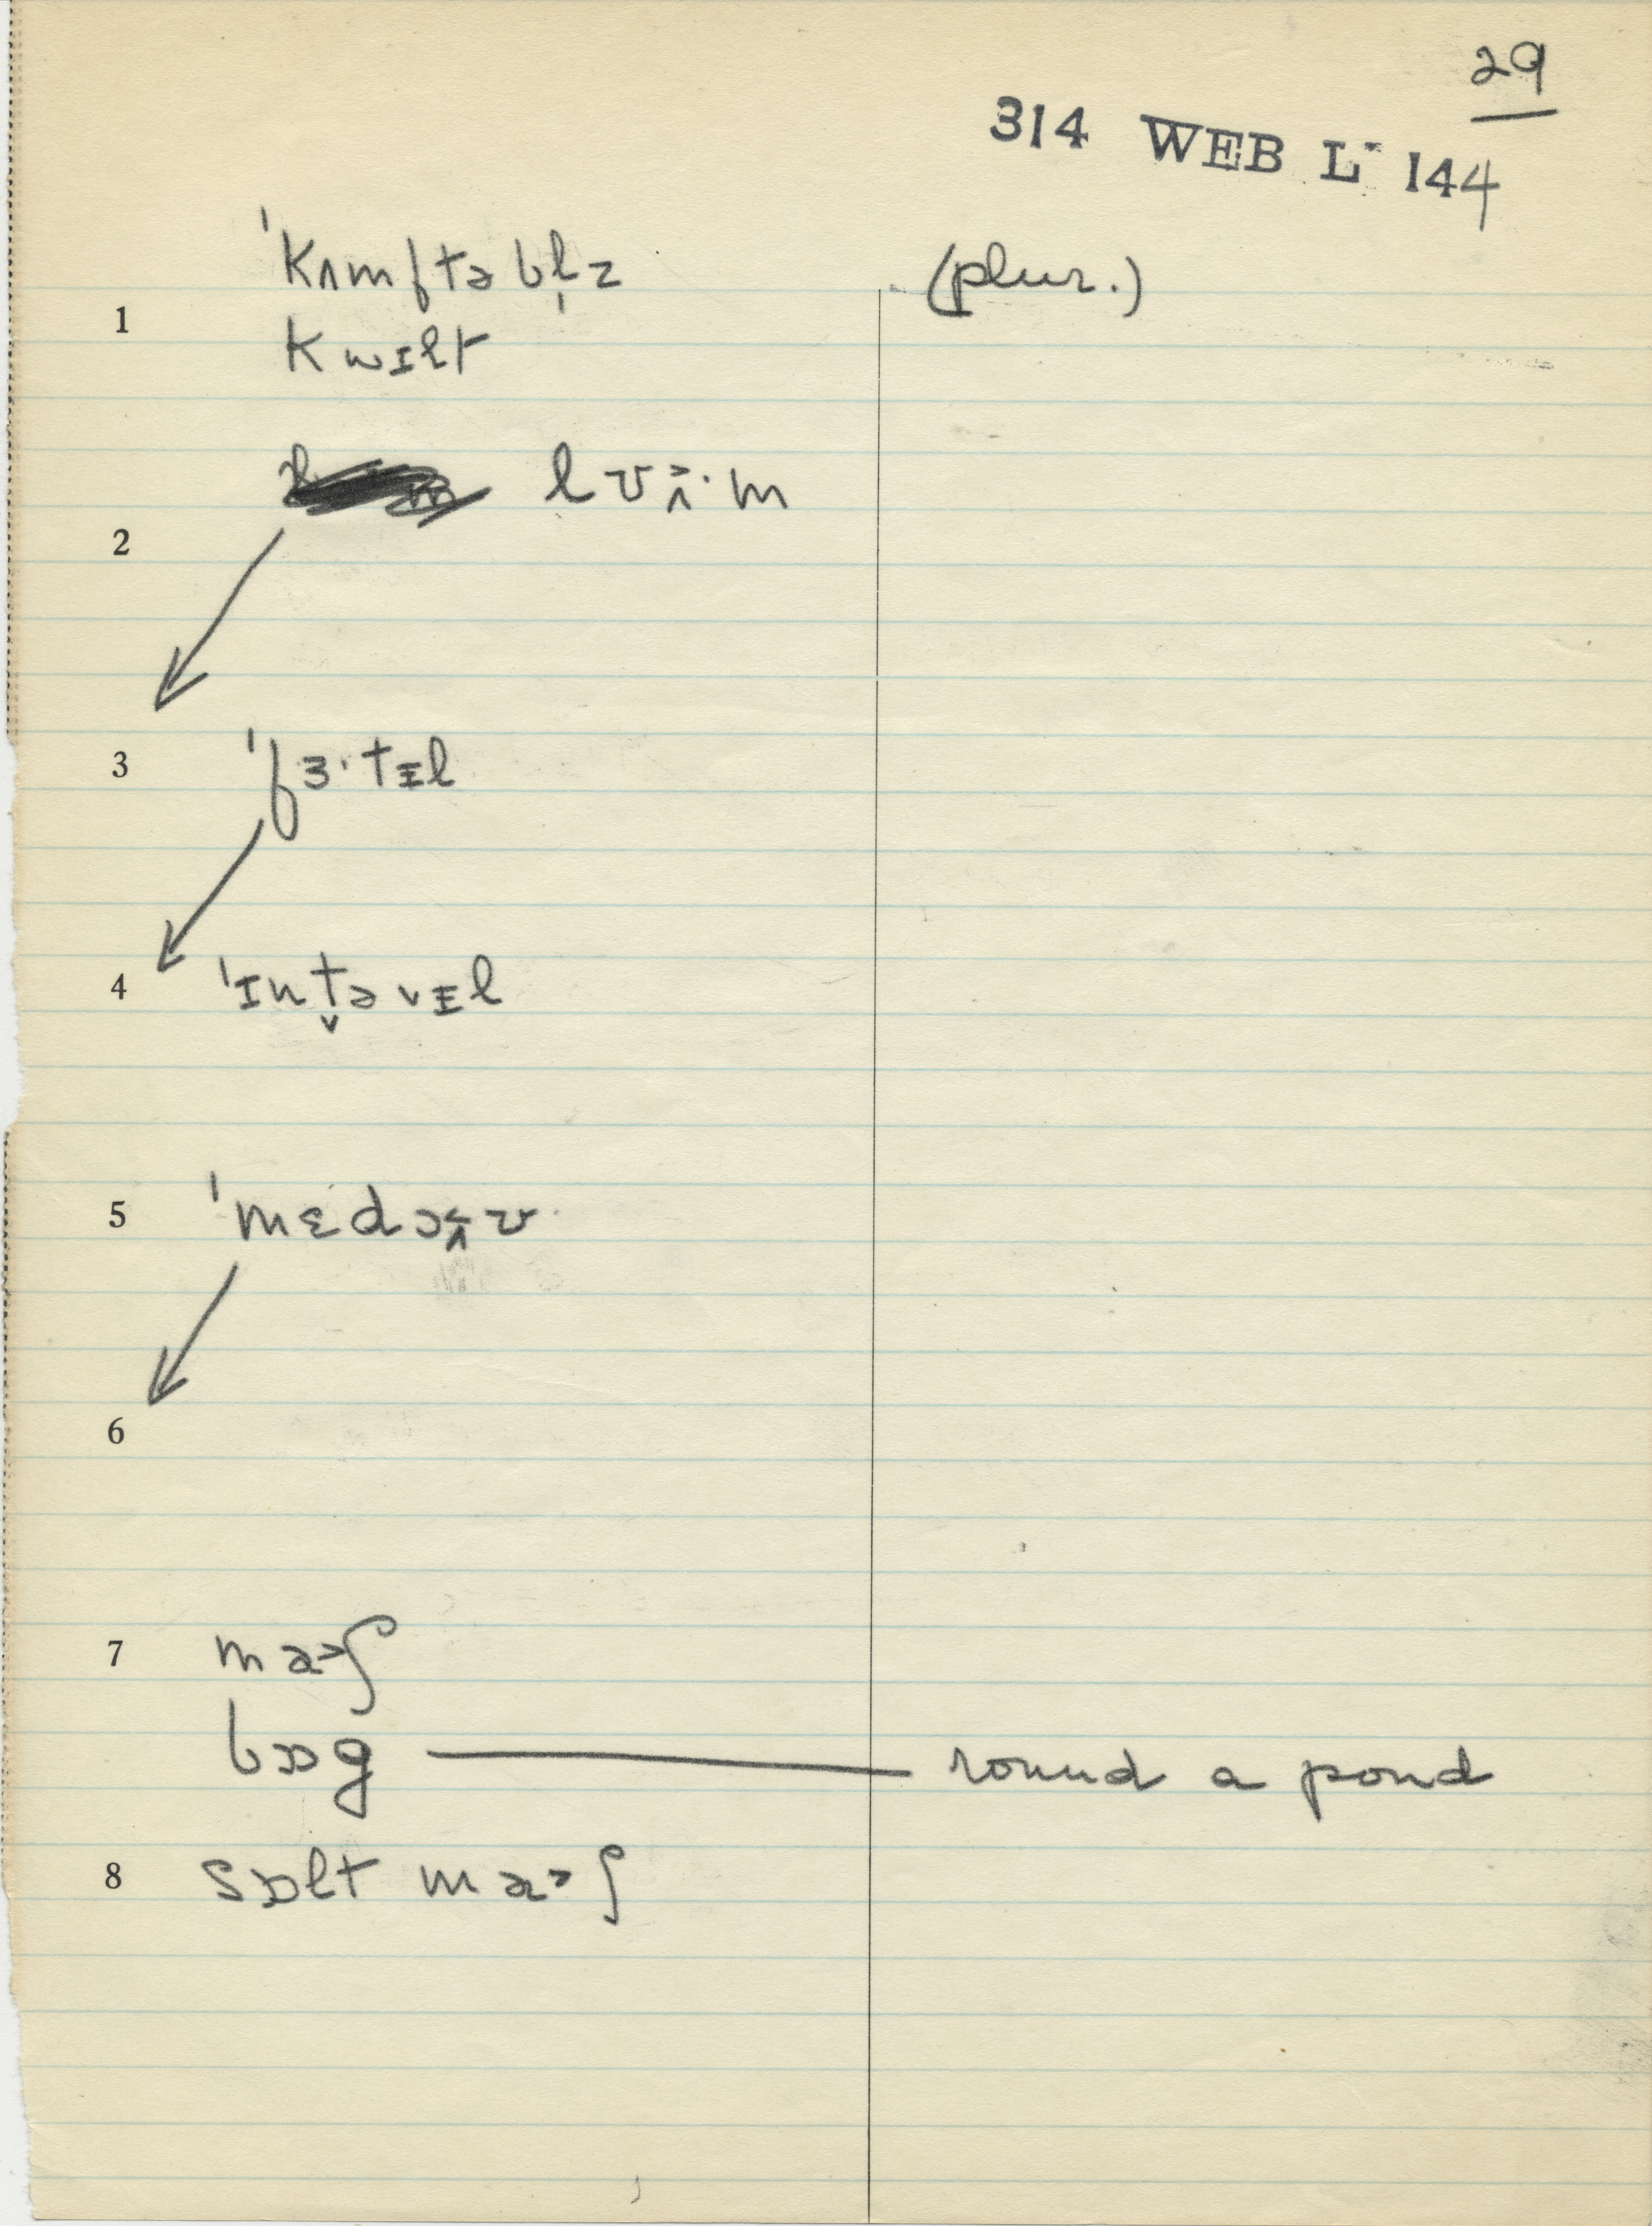 29
314 WEB L- 144
ˈkʌmftəbl̩z (plur.)
1
kwɪlt
lʊʌ̝·m
2
3 ˈfɜ·tɪl
4 ˈɪnt̬əvɪl
5 ˈmɛdɔʌʊ
6
7 ma>ʃ
bɒg — round a pond
8 sɒlt ma>ʃ